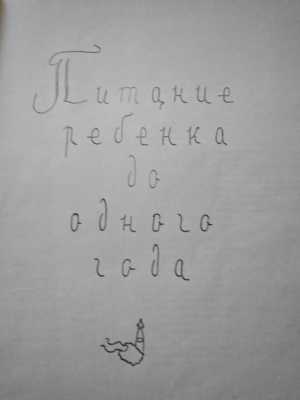 Питание
ребенка
до
одного
года